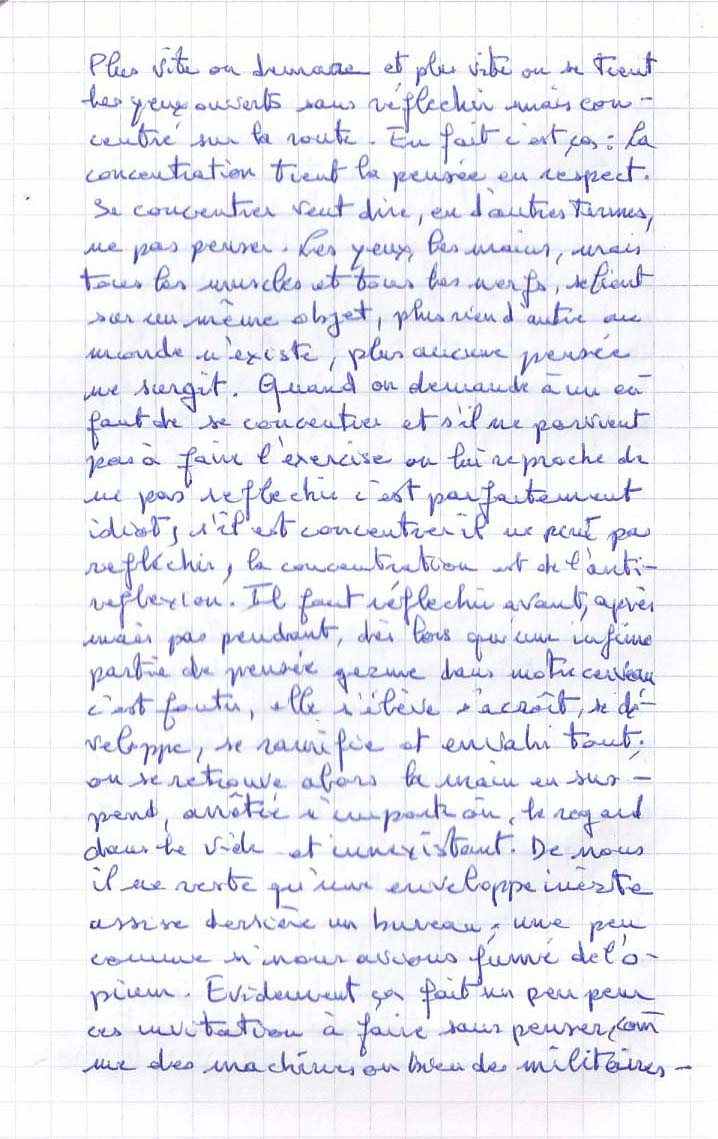 Plus vite on demarre et plus vite on se tient
les yeux ouverts sans réflechir mais con-
centré sur la route. En fait c'est ça : la
concentration tient la pensée en respect.
Se concentrer veut dire, en d'autres termes,
ne pas penser. Les yeux, les mains, mais
tous les muscles et tous les nerfs, se lient
sur un même objet, plus rien d'autre au
monde n'existe, plus aucune pensée
ne surgit. Quand on demande à un en
fant de se concentrer et s'il ne parvient
pas à faire l'exercise on lui reproche de
ne pas reflechir c'est parfaitement
idiot, s'il est concentrer il ne peut pas
reflechir, la concentration est de l'anti-
reflexion. Il faut réflechir avant, après
mais pas pendant, dès lors qu'une infime
partie de pensée germe dans notre cerveau
c'est foutu, elle s'élève s'acroît, se dé-
veloppe, se ramifie et envahi tout;
on se retrouve alors la main en sus-
pend, arrêtée n'importe où, le regard
dans le vide et innexistant. De nous
il ne reste qu'une enveloppe inerte
assise derrière un bureau, une peu
comme si nous avions fumé de l'o-
pium. Evidemment ça fait un peu peur
ces invitation à faire sans penser, com
me des machines ou bien des militaires-